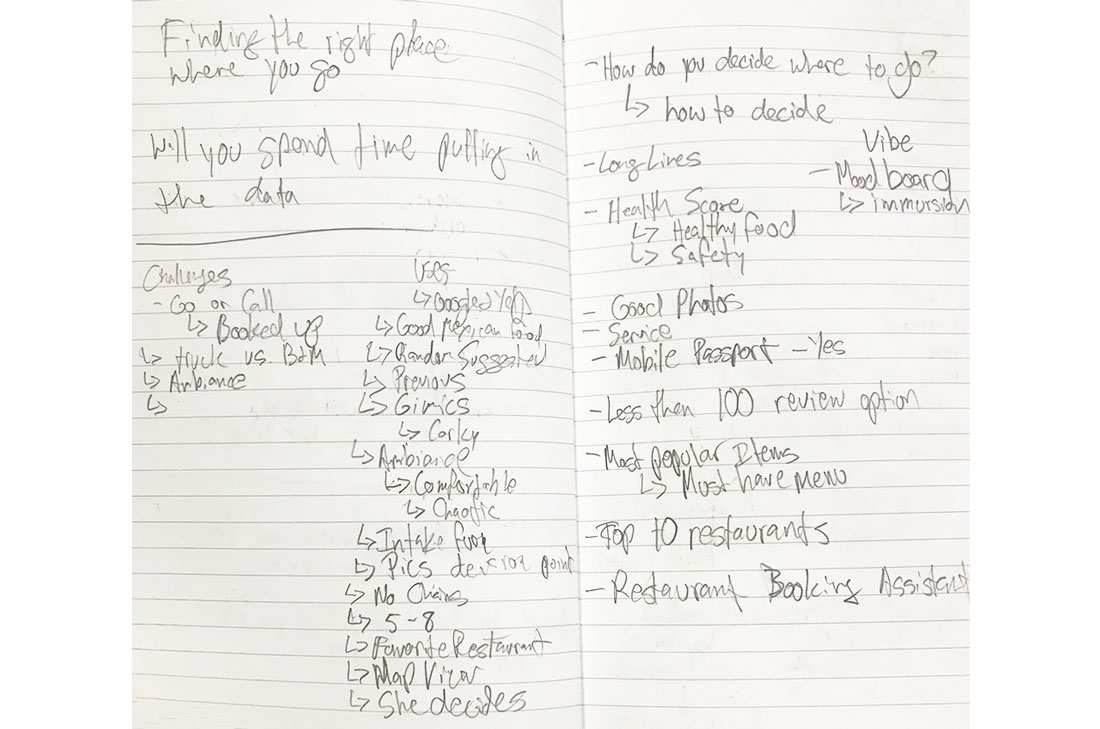 Finding the right place
where you go
Will you spend time putting in
the data
Challenges
- Go or Call
↳ Booked up
↳ truck vs. B&M
↳ Ambiance
↳
Uses
↳ Google Yelp
↳ Good Mexican food
↳ Random Suggested
↳ Previous
↳ Gimics
↳ Corky
↳ Ambiance
↳ Comfortable
↳ Chaotic
↳ Intake
↳ Pics decision point
↳ No Chains
↳ 5-8
↳ Favorite Restaurant
↳ Map View
↳ She decides
- How do you decide where to go?
↳ how to decide
- Long Lines
Vibe
- Mood board
↳ immursion
- Health Score
↳ Healthy food
↳ Safety
- Good Photos
- Service
- Mobile Passport - Yes
- Less then 100 review option
- Most popular Items
↳ Must have menu
- Top 10 restaurants
- Restaurant Booking Assistant